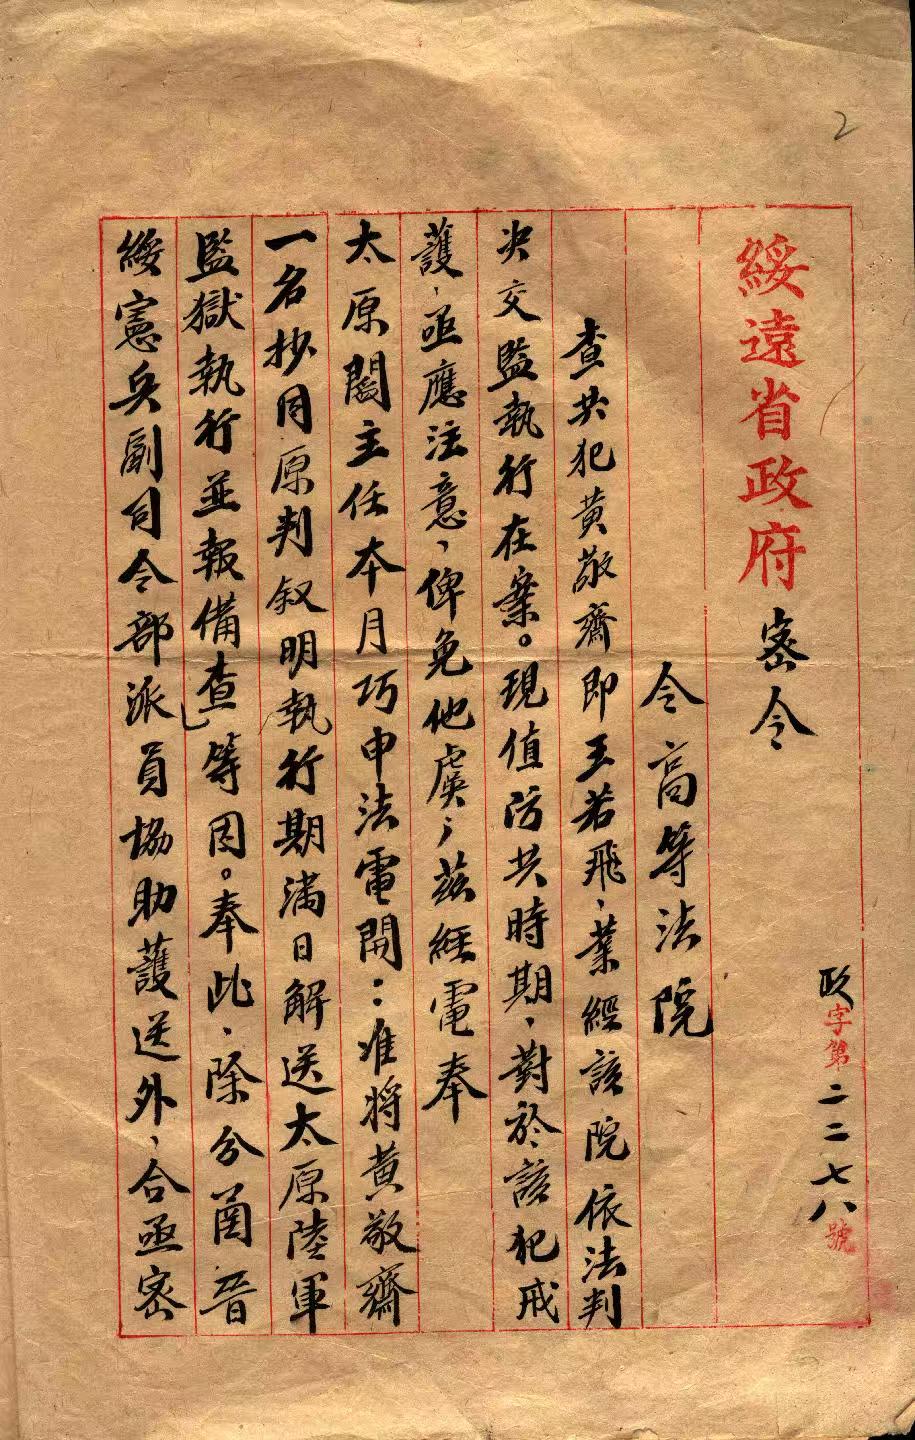 2
綏遠省政府密令
政字第二二七八號
令高等法院
查共犯黃敬齋即王若飛、業經該院依法判
决交監執行在案。現值防共時期、對於該犯戒
護、亟應注意、俾免他虞；茲經電奉
太原閻主任本月巧申法電開：准將黃敬齋
一名抄同原判叙明執行期滿日解送太原陸軍
監獄執行並報備查等因。奉此、除分函晉
綏憲兵副司令部派員協助護送外、合亟密